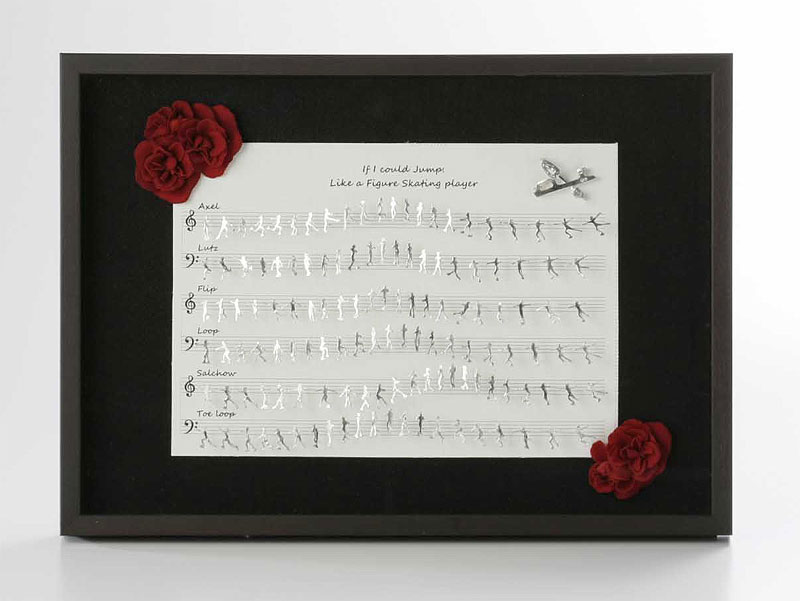 If I could Jump:
Like a Figure Skating player
Axel
Lutz
Flip
Loop
Salchow
Toe loop